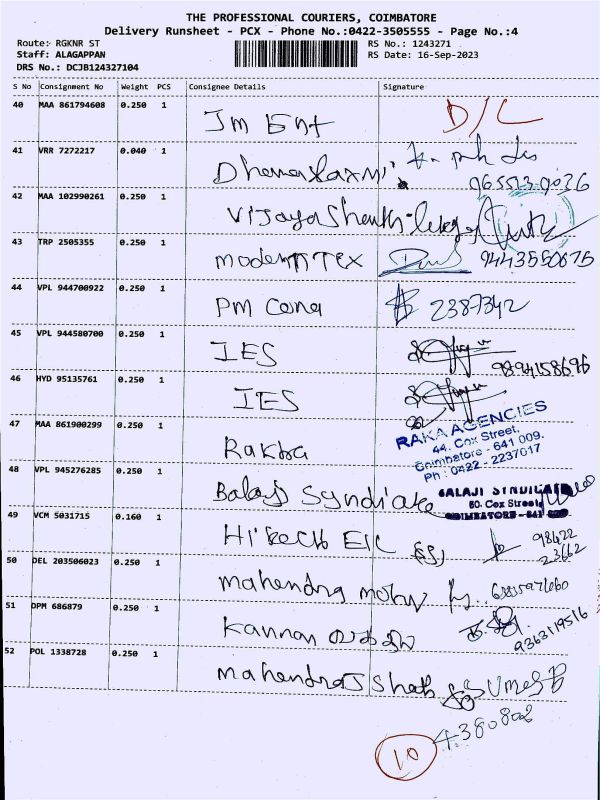 THE PROFESSIONAL COURIERS, COIMBATORE
Delivery Runsheet - PCX - Phone No.:0422-3505555 - Page No.:4
Route: RGKNR ST RS No.: 1243271
Staff: ALAGAPPAN RS Date: 16-Sep-2023
DRS No.: DCJB124327104
S No Consignment No Weight PCS Consignee Details Signature
40 MAA 861794608 0.250 1 Jm Ent D/L
41 VRR 7272217 0.040 1 Dhanalaxmi
42 MAA 102990261 0.250 1
43 TRP 2505355 0.250 1 modern TEX 9443550675
44 VPL 944700922 0.250 1 PM 2387342
45 VPL 944580700 0.250 1 IES 9894158696
46 HYD 95135761 0.250 1 IES
47 MAA 861900299 0.250 1 Rakha
RAKA AGENCIES
44, Cox Street,
Coimbatore - 641 009.
Ph : 0422 - 2237017
48 VPL 945276285 0.250 1 Balaji Syndicate
BALAJI SYNDICATE
60. Cox Street
COIMBATORE - 641
49 VCM 5031715 0.160 1 Hitech EIC 98422
23662
50 DEL 203506023 0.250 1 mahendra
51 DPM 686879 0.250 1 Kannan 9363119516
52 POL 1338728 0.250 1 mahendra J Shah
4380802
10